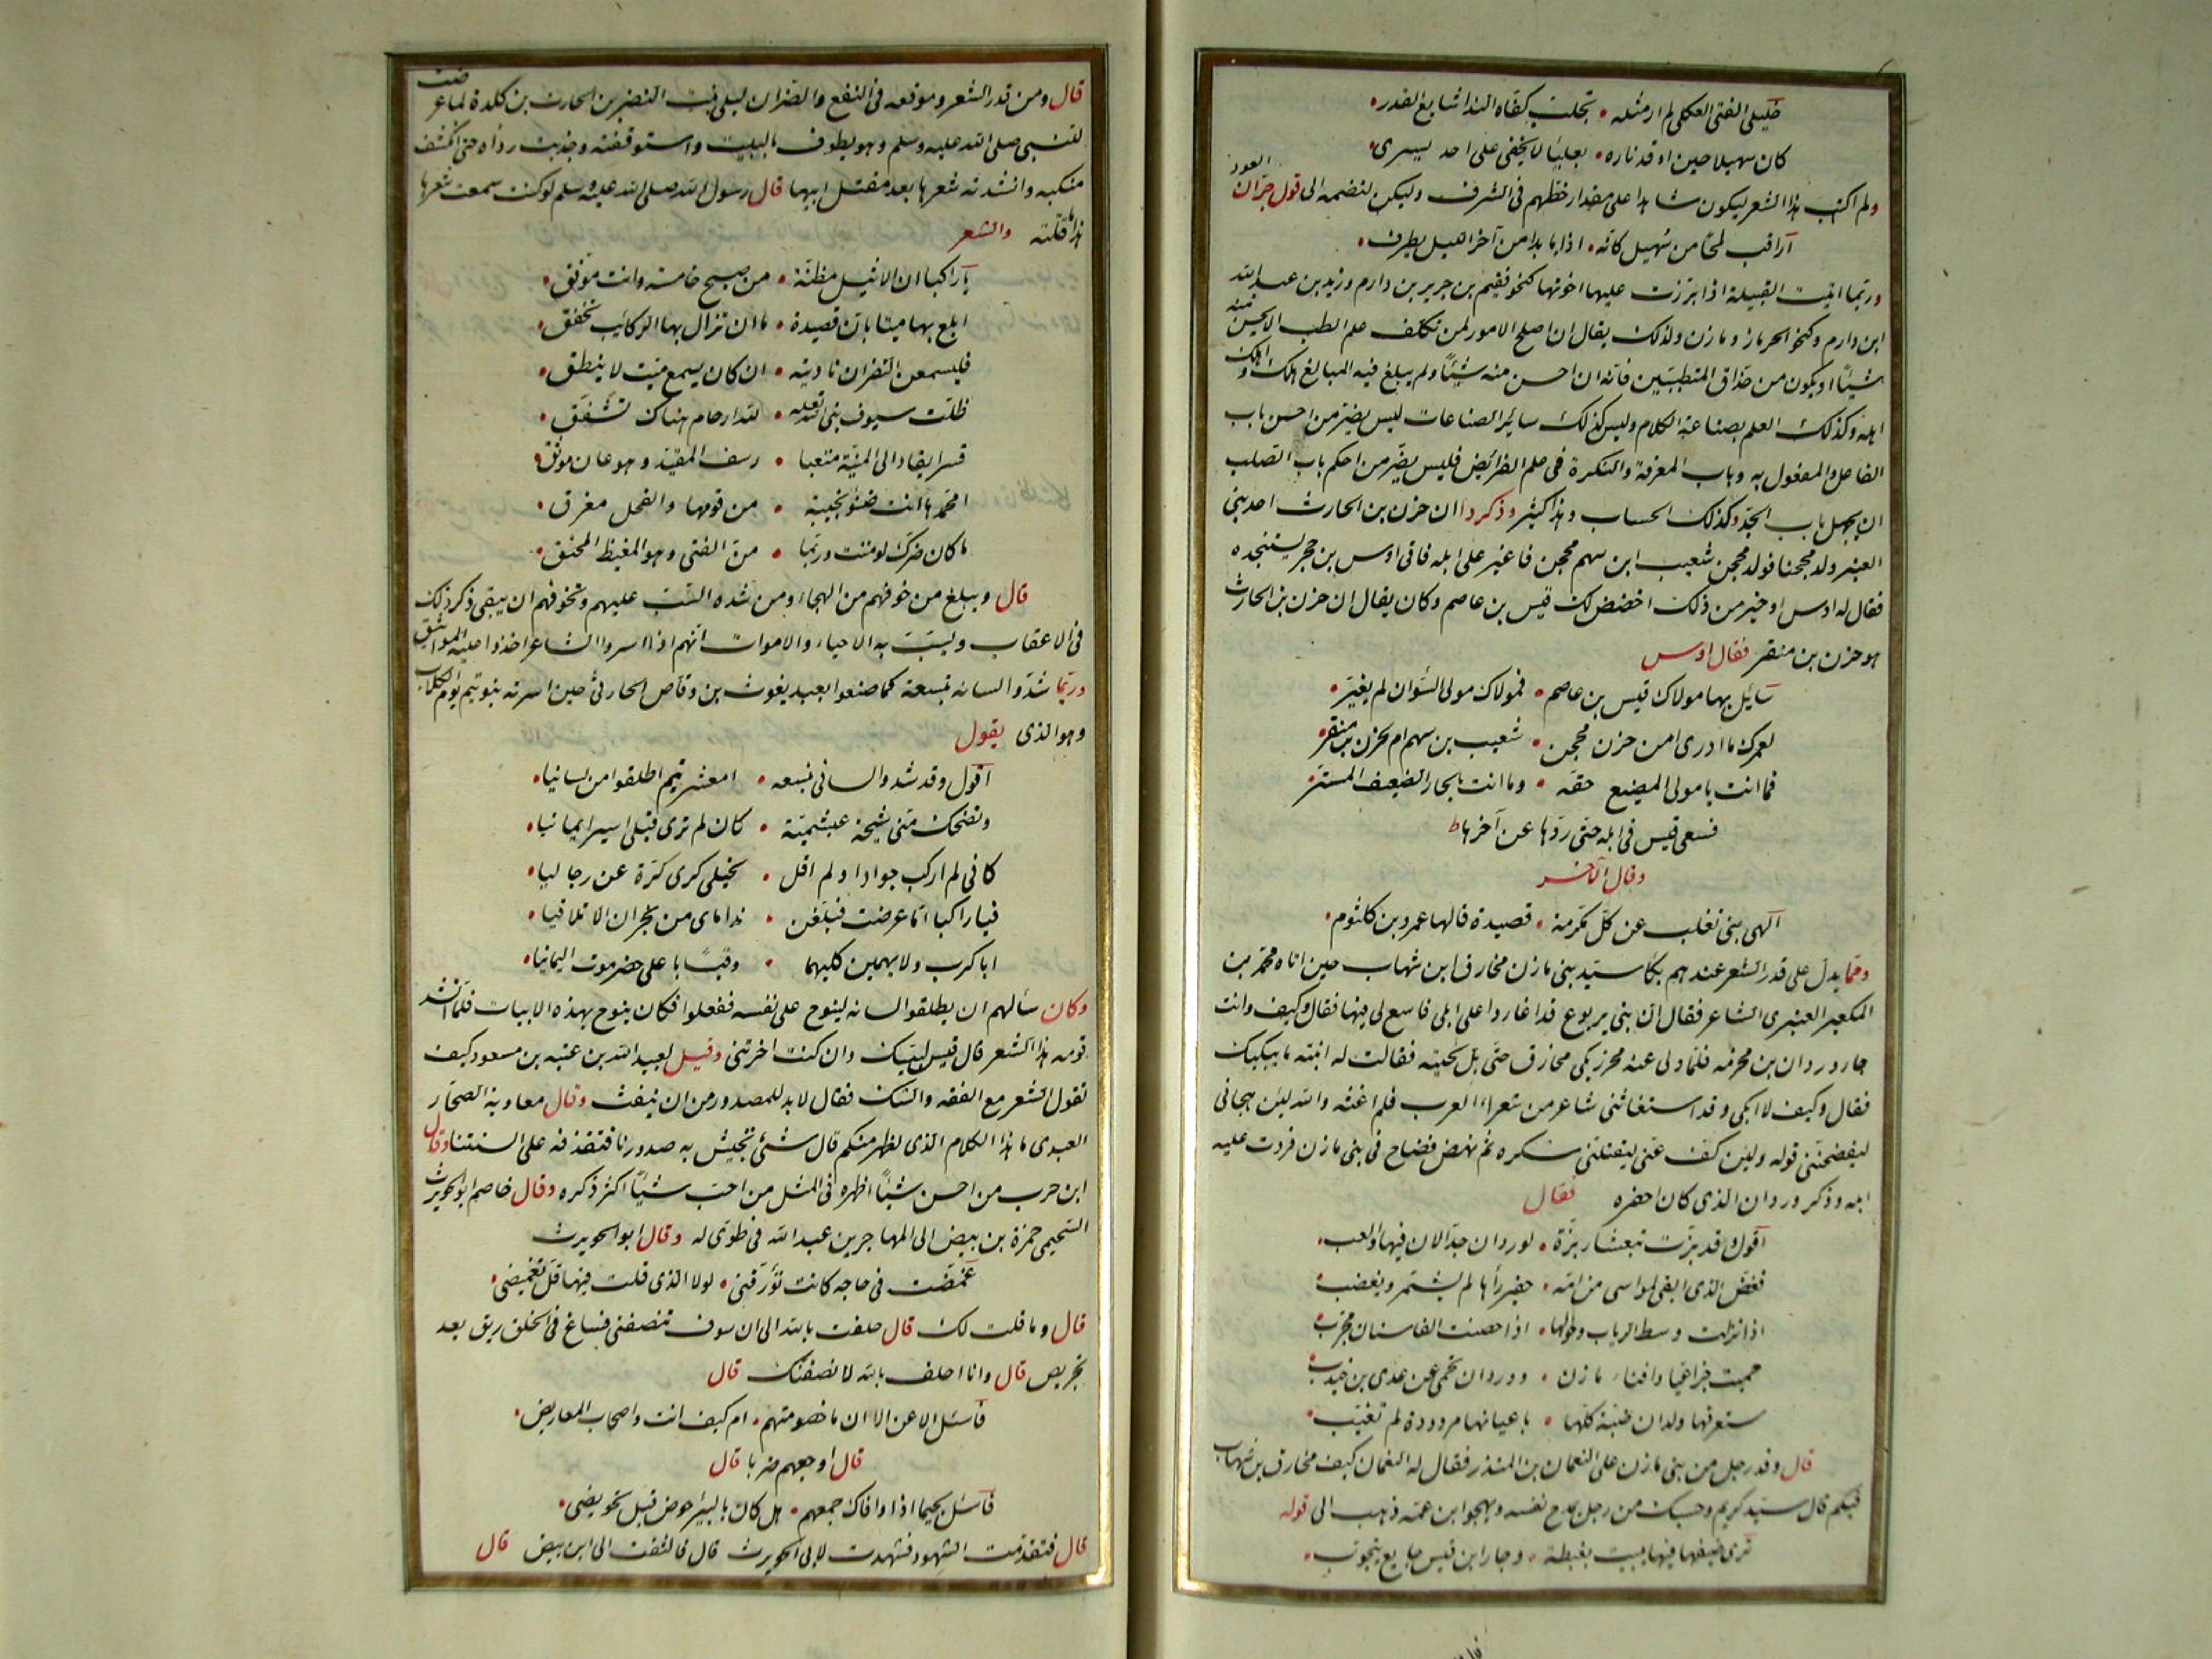 خليلي الفتى العكلي لم ار مثله • تحلب كفاه الندا شايع القدر •
كان سهيلا حين اوقد ناره • بعلياء لا يخفى على احد يسرى •
ولم اكتب هذا الشعر ليكون شاهدا على مقدار حظهم في الشرف وليكن لنضمه الى قول جران العود
اراقب لمحا من سهيل كانه • اذا ما بدا من آخر الليل يطرف •
وربما اتيت القبيلة اذا برزت عليها اخوتها كنحو فقيم بن جرير بن دارم وزيد بن عبد الله
ابن دارم وكنحو الحرماز ومازن ولذلك يقال ان اصلح الامور لمن تكلف علم الطب الا يحسن منه
شيئا او يكون من حذاق المتطببين فانه ان احسن منه شيئا ولم يبلغ فيه المبالغ هلك واهلك
اهله وكذلك العلم بصناعة الكلام وليس كذلك سائر الصناعات ليس يضر من احسن باب
الفاعل والمفعول به وباب المعرفة والنكرة في علم الفرائض فليس يضر من احكم باب الصلب
ان يجهل باب الجد وكذلك الحساب وهذا كثير وذكروا ان حزن بن الحارث احد بني
العنبر ولد محجنا فولد محجن شعيب ابن سهم محجن فاغير على ابله فاتى اوس بن حجر يستنجده
فقال له اوس او خير من ذلك احضض لك قيس بن عاصم وكان يقال ان حزن بن الحارث
هو حزن بن منقر فقال اوس
سائل بها مولاك قيس بن عاصم • فمولاك مولى السوان لم يغير •
لعمرك ما ادرى امن حزن محجن • شعيب بن سهم ام لحزن بن منقر •
فما انت بامولى المضيع حقه • وما انت بالجار الضعيف المستر
فسعى قيس في ابله حتى ردها عن آخرها
وقال الآخر
الهى بني تغلب عن كل مكرمة • قصيدة قالها عمرو بن كلثوم •
ومما يدل على قدر الشعر عندهم بكاء سيد بني مازن مخارق ابن شهاب حين اتاه محمد بن
المكعبر العنبرى الشاعر فقال ان بني يربوع قد اغاروا على ابلى فاسع لى فيها فقال وكيف وانت
جار وردان بن مخرمه فلما ولى عنه محرز بكى مخارق حتى بل لحيته فقالت له ابنته ما يبكيك
فقال وكيف لا ابكى وقد استغاثني شاعر من شعراء العرب فلم اغثه والله لئن هجاني
ليفضحنني قوله ولئن كف عني ليقتلني شكره ثم نهض فصاح في بني مازن فردت عليه
ابله وذكر وردان الذى كان اخفره فقال
اقول قد بزت بتعشار بزة • لوردان جد الان فيها او العب •
فغض الذى ابقى المواسى من امه • خفير رأها لم يشمر ويغضب •
اذا نزلت وسط الرباب وحولها • اذا حصنت الفا سنان محرب •
حميت خزاعيا وافناء مازن • ووردان يحمى عن عدى بن جندب •
ستعرفها ولدان ضبة كلها • باعيانها مردودة لم تغيب •
قال وفد رجل من بني مازن على النعمان بن المنذر فقال له النعمان كيف مخارق بن شهاب
فيكم قال سيد كريم وحسبك من رجل يمدح نفسه ويهجو ابن عمه ذهب الى قوله
ترى ضيفها فيها يبيت بغبطة • وجار ابن قيس جايع يتحوب •
قال ومن قدر الشعر وموقعه في النفع والضر ان ليلى بنت النضر بن الحارث بن كلدة لما عرضت
للنبي صلى الله عليه وسلم وهو يطوف بالبيت واستوقفته وجذبت رداه حتى انكشف
منكبه وانشدته شعرها بعد مقتل ابيها قال رسول الله صلى الله عليه وسلم لو كنت سمعت شعرها
هذا ما قتلته والشعر
يا راكبا ان الاثيل مظنة • من صبح خامسة وانت موفق •
ابلغ بها ميتا بان قصيدة • ما ان تزال بها الركائب تخفق •
فليسمعن النضر ان ناديته • ان كان يسمع ميت لا ينطق •
ظلت سيوف بني ابيه • لله ارحام هناك تشقق •
قسرا يقاد الى المنية متعبا • رسف المقيد وهو عان موثق •
امحمد ها انت ضنو نجيبة • من قومها والفحل معرق •
ما كان ضرك لو مننت وربما • من الفتى وهو المغيظ المحنق •
قال ويبلغ من خوفهم من الهجاء ومن شدة السب عليهم وتخوفهم ان يبقى ذكر ذلك
في الاعقاب ويسبب به الاحياء والاموات انهم اذا اسروا الشاعر اخذوا عليه المواثيق
وربما شدوا لسانه بنسعة كما صنعوا بعبد يغوث بن وقاص الحارثي حين اسرته بنو تيم يوم الكلاب
وهو الذى يقول
اقول وقد شدوا لسانى بنسعه • امعشر تيم اطلقوا من لسانيا •
وتضحك منى شيخة عبشمية • كان لم ترى قبلى اسيرا يمانيا •
كانى لم اركب جوادا ولم اقل • لخيلى كرى كرة عن رجاليا •
فيا راكبا اما عرضت فبلغن • نداماى من نجران الا تلاقيا •
ابا كرب والايهمين كليهما • وقيسا با على حضرموت اليمانيا •
وكان سألهم ان يطلقوا لسانه لينوح على نفسه ففعلوا فكان ينوح بهذه الابيات فلما انشد
قومه هذا الشعر قال قيس لبيك وان كنت اخرتنى وقيل لعبيد الله بن عبد الله بن عتبه بن مسعود كيف
تقول الشعر مع الفقه والنسك فقال لا بد للمصدور من ان ينفث وقال معاوية لصحار
العبدى ما هذا الكلام الذى يظهر منكم قال شئ تجيش به صدورنا فتقذفه على السنتنا وقال
ابن حرب من احسن شيئا اظهره في المثل من احب شيئا اكثر ذكره وقال خاصم ابو الحويرث
السحيمى حمزة بن بيض الى المهاجر بن عبد الله في طوى له وقال ابو الحويرث
غمضت في حاجه كانت تؤرقنى • لولا الذى قلت فيها قل تغميضى •
قال وما قلت لك قال حلفت بالله الى ان سوف تنصفنى فساغ في الحلق ريق بعد
تجريض قال وانا احلف بالله لانصفنك قال
فاسئل الا عن الا ان ما خصومتهم • ام كيف انت واصحاب المعاريض •
قال اوجعهم ضربا قال
فاسئل لجيما اذا وافاك جمعهم • هل كان بالبئر حوض قبل تحويضى •
قال فتقدمت الشهود فشهدت لابي الحويرث قال فالتفت الى ابن بيض قال